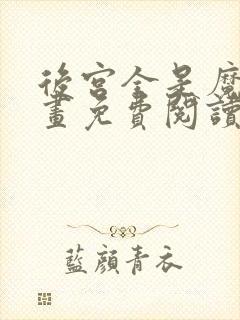 後宮全是魔
畫免費閱讀
藍顏青衣